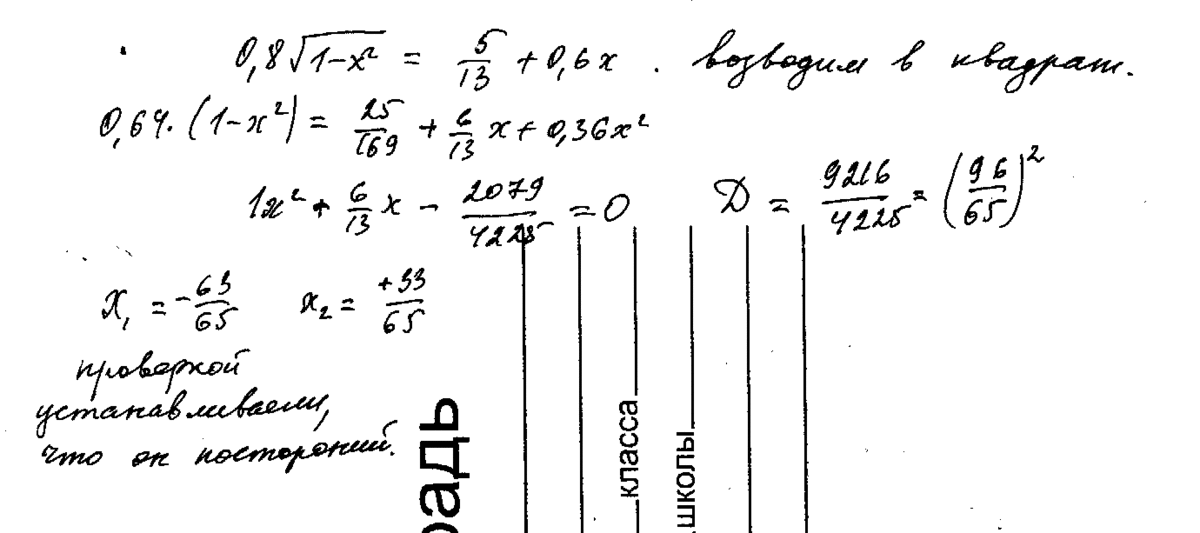 0,8√(1-x²) = 5/13 + 0,6x . возводим в квадрат.
0,64·(1-x²) = 25/169 + 6/13 x + 0,36x²
1x² + 6/13 x - 2079/4225 = 0 Д = 9216/4225 = (96/65)²
x₁ = -63/65 x₂ = +33/65
проверкой
устанавливаем,
что он посторонний.
радь
класса
школы